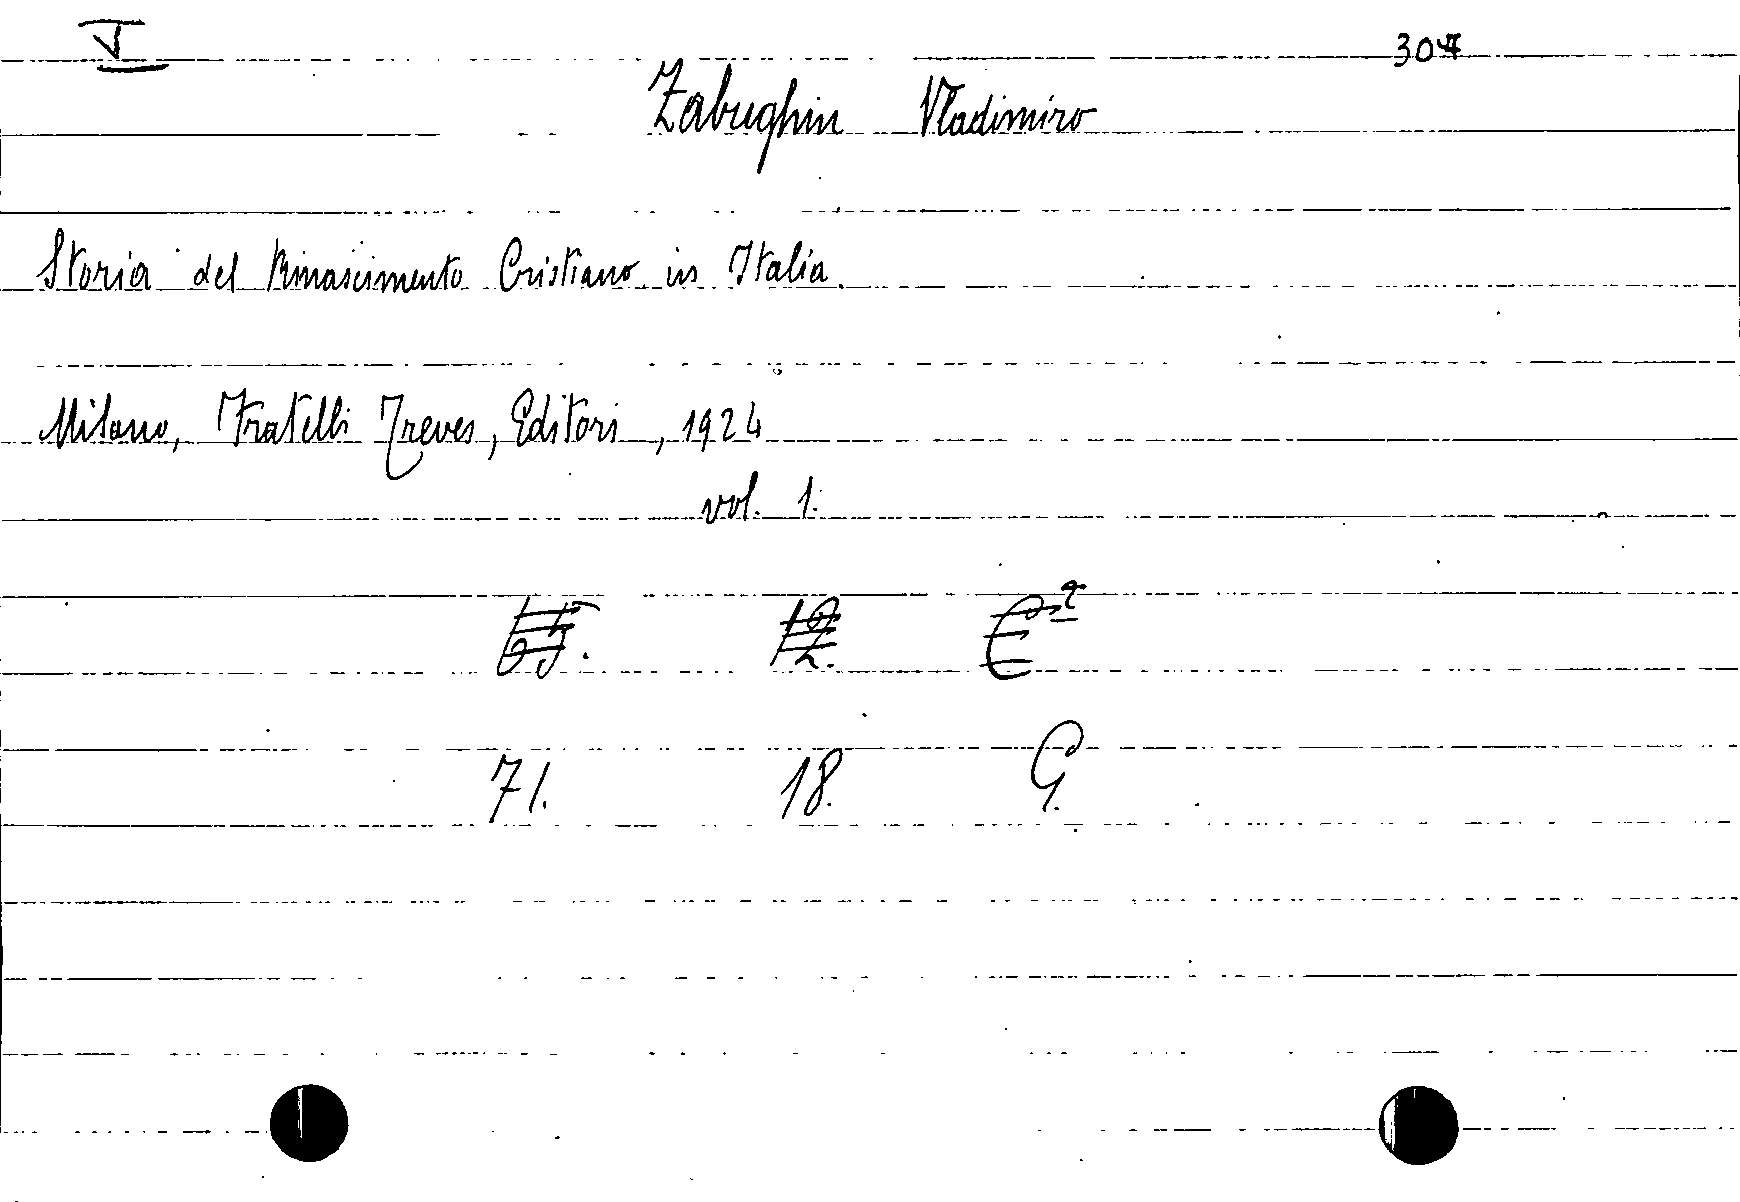 V 307
Zabughin Vladimiro
Storia del Rinascimento Cristiano in Italia.
Milano, Fratelli Treves, Editori, 1924
vol. 1.
71. 18. G.